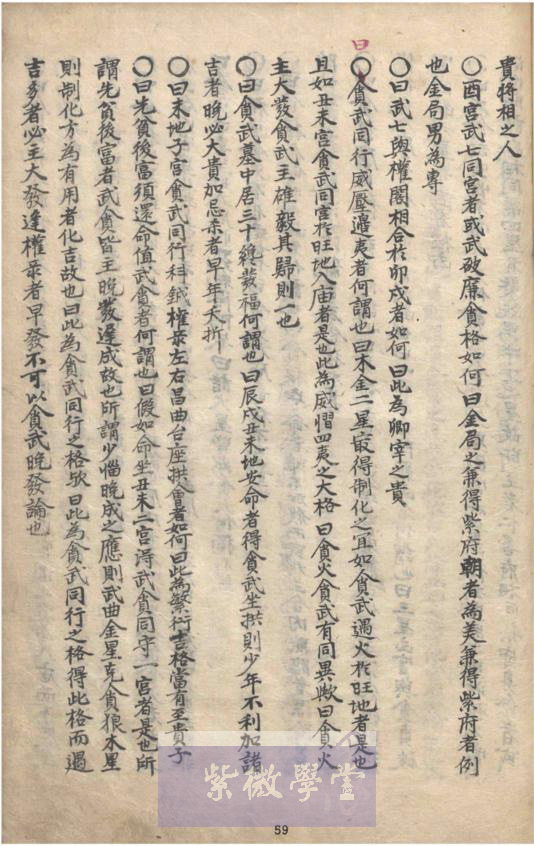 貴將相之人
〇酉宮武七同宮者或武破廉貪格如何曰金局之兼得紫府朝者為美兼得紫府者例
也金局男為專
〇曰武七與權閣相合於卯戌者如何曰此為卿宰之貴
曰
〇貪武同行威壓邉夷者何謂也曰木金二星㝡得制化之宜如貪武遇火於旺地者是也
且如丑未宮貪武同宮於旺地入庙者是也此為威慴四夷之大格曰貪火貪武有同異欤曰貪火
主大發貪武主雄毅其歸則一也
〇曰貪武墓中居三十纔發福何謂也曰辰戌丑未地安命者得貪武坐拱則少年不利加諸
吉者晚必大貴加忌杀者早年夭折
〇曰未地子宮貪武同行科鉞權彔左右昌曲台座拱會者如何曰此為繁行吉格當有至貴子
〇曰先貧後富須還命值武貪者何謂也曰假如命坐丑未二宮淂武貪同守一宮者是也所
謂先貧後富者武貪皆主晚發遅成故也所謂少惱晚成之應則武曲金星克貪狼木星
則制化方為有用者化吉故也曰此為貪武同行之格欤曰此為貪武同行之格得此格而遇
吉多者必主大發逢權彔者早發不可以貪武晚發論也
紫微學堂
59